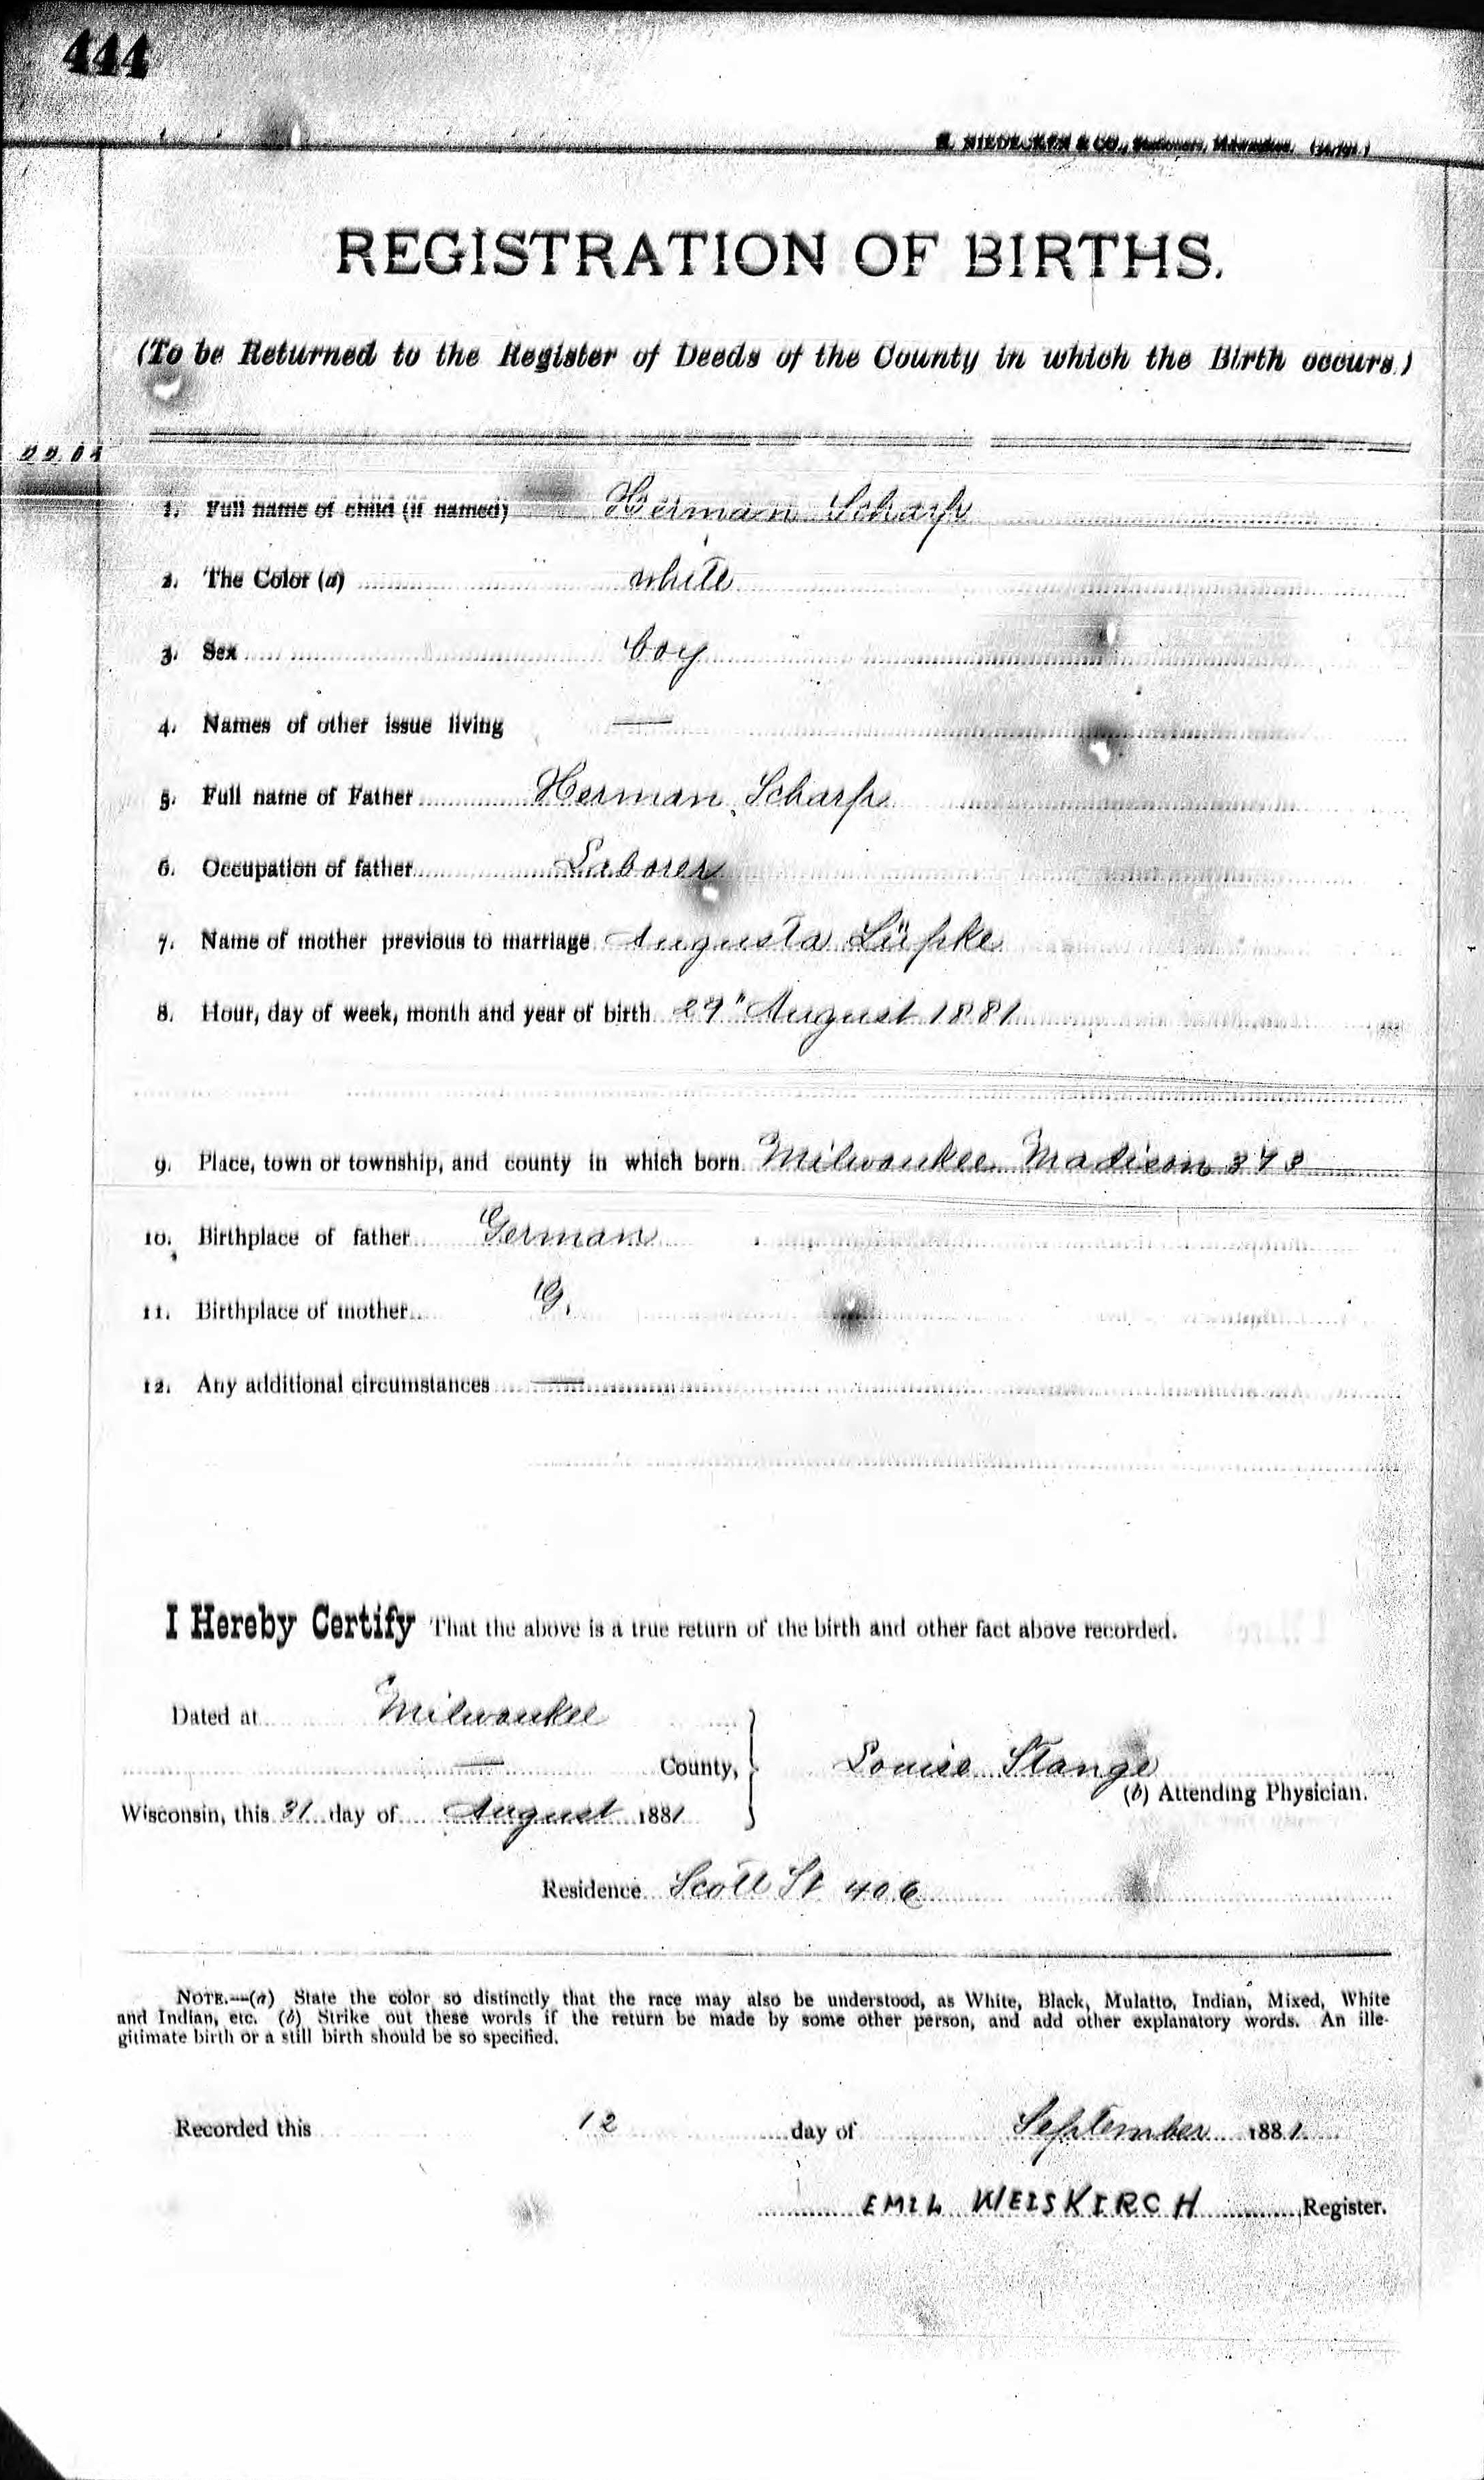 444
NIEDECKEN & CO., Stationers, Milwaukee.
REGISTRATION OF BIRTHS.
(To be Returned to the Register of Deeds of the County in which the Birth occurs.)
1. Full name of child (if named) Herman Scharp
2. The Color (a) white
3. Sex boy
4. Names of other issue living —
5. Full name of Father Herman Scharp
6. Occupation of father Laborer
7. Name of mother previous to marriage Augusta Lüpke
8. Hour, day of week, month and year of birth 29" August 1881
9. Place, town or township, and county in which born Milwaukee Madison 373
10. Birthplace of father German
11. Birthplace of mother G.
12. Any additional circumstances —
I Hereby Certify That the above is a true return of the birth and other fact above recorded.
Dated at Milwaukee
— County,
Louise Stange
(b) Attending Physician.
Wisconsin, this 31 day of August 1881
Residence Scott St 406
NOTE.—(a) State the color so distinctly that the race may also be understood, as White, Black, Mulatto, Indian, Mixed, White
and Indian, etc. (b) Strike out these words if the return be made by some other person, and add other explanatory words. An ille-
gitimate birth or a still birth should be so specified.
Recorded this 12 day of September 1881
EMIL WEISKIRCH Register.